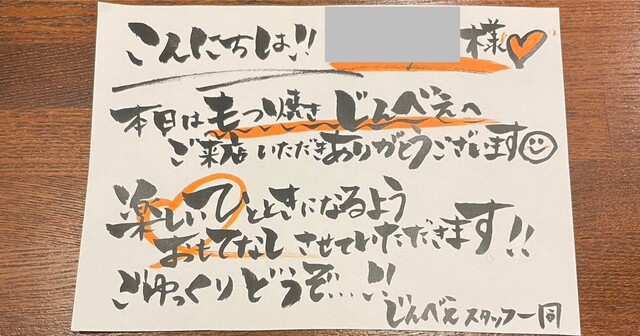 こんにちは!! 様
本日はもつ焼きじんべえへ
ご来店いただきありがとうございます
楽しいひとときになるよう
おもてなしさせていただきます!!
ごゆっくりどうぞ…!!
じんべえスタッフ一同